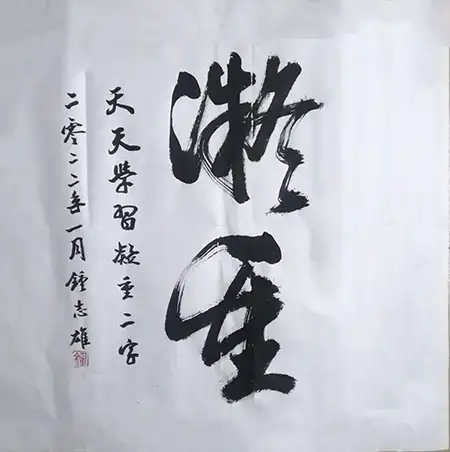 凝重
天天學習凝重二字
二零二二年一月鍾志雄